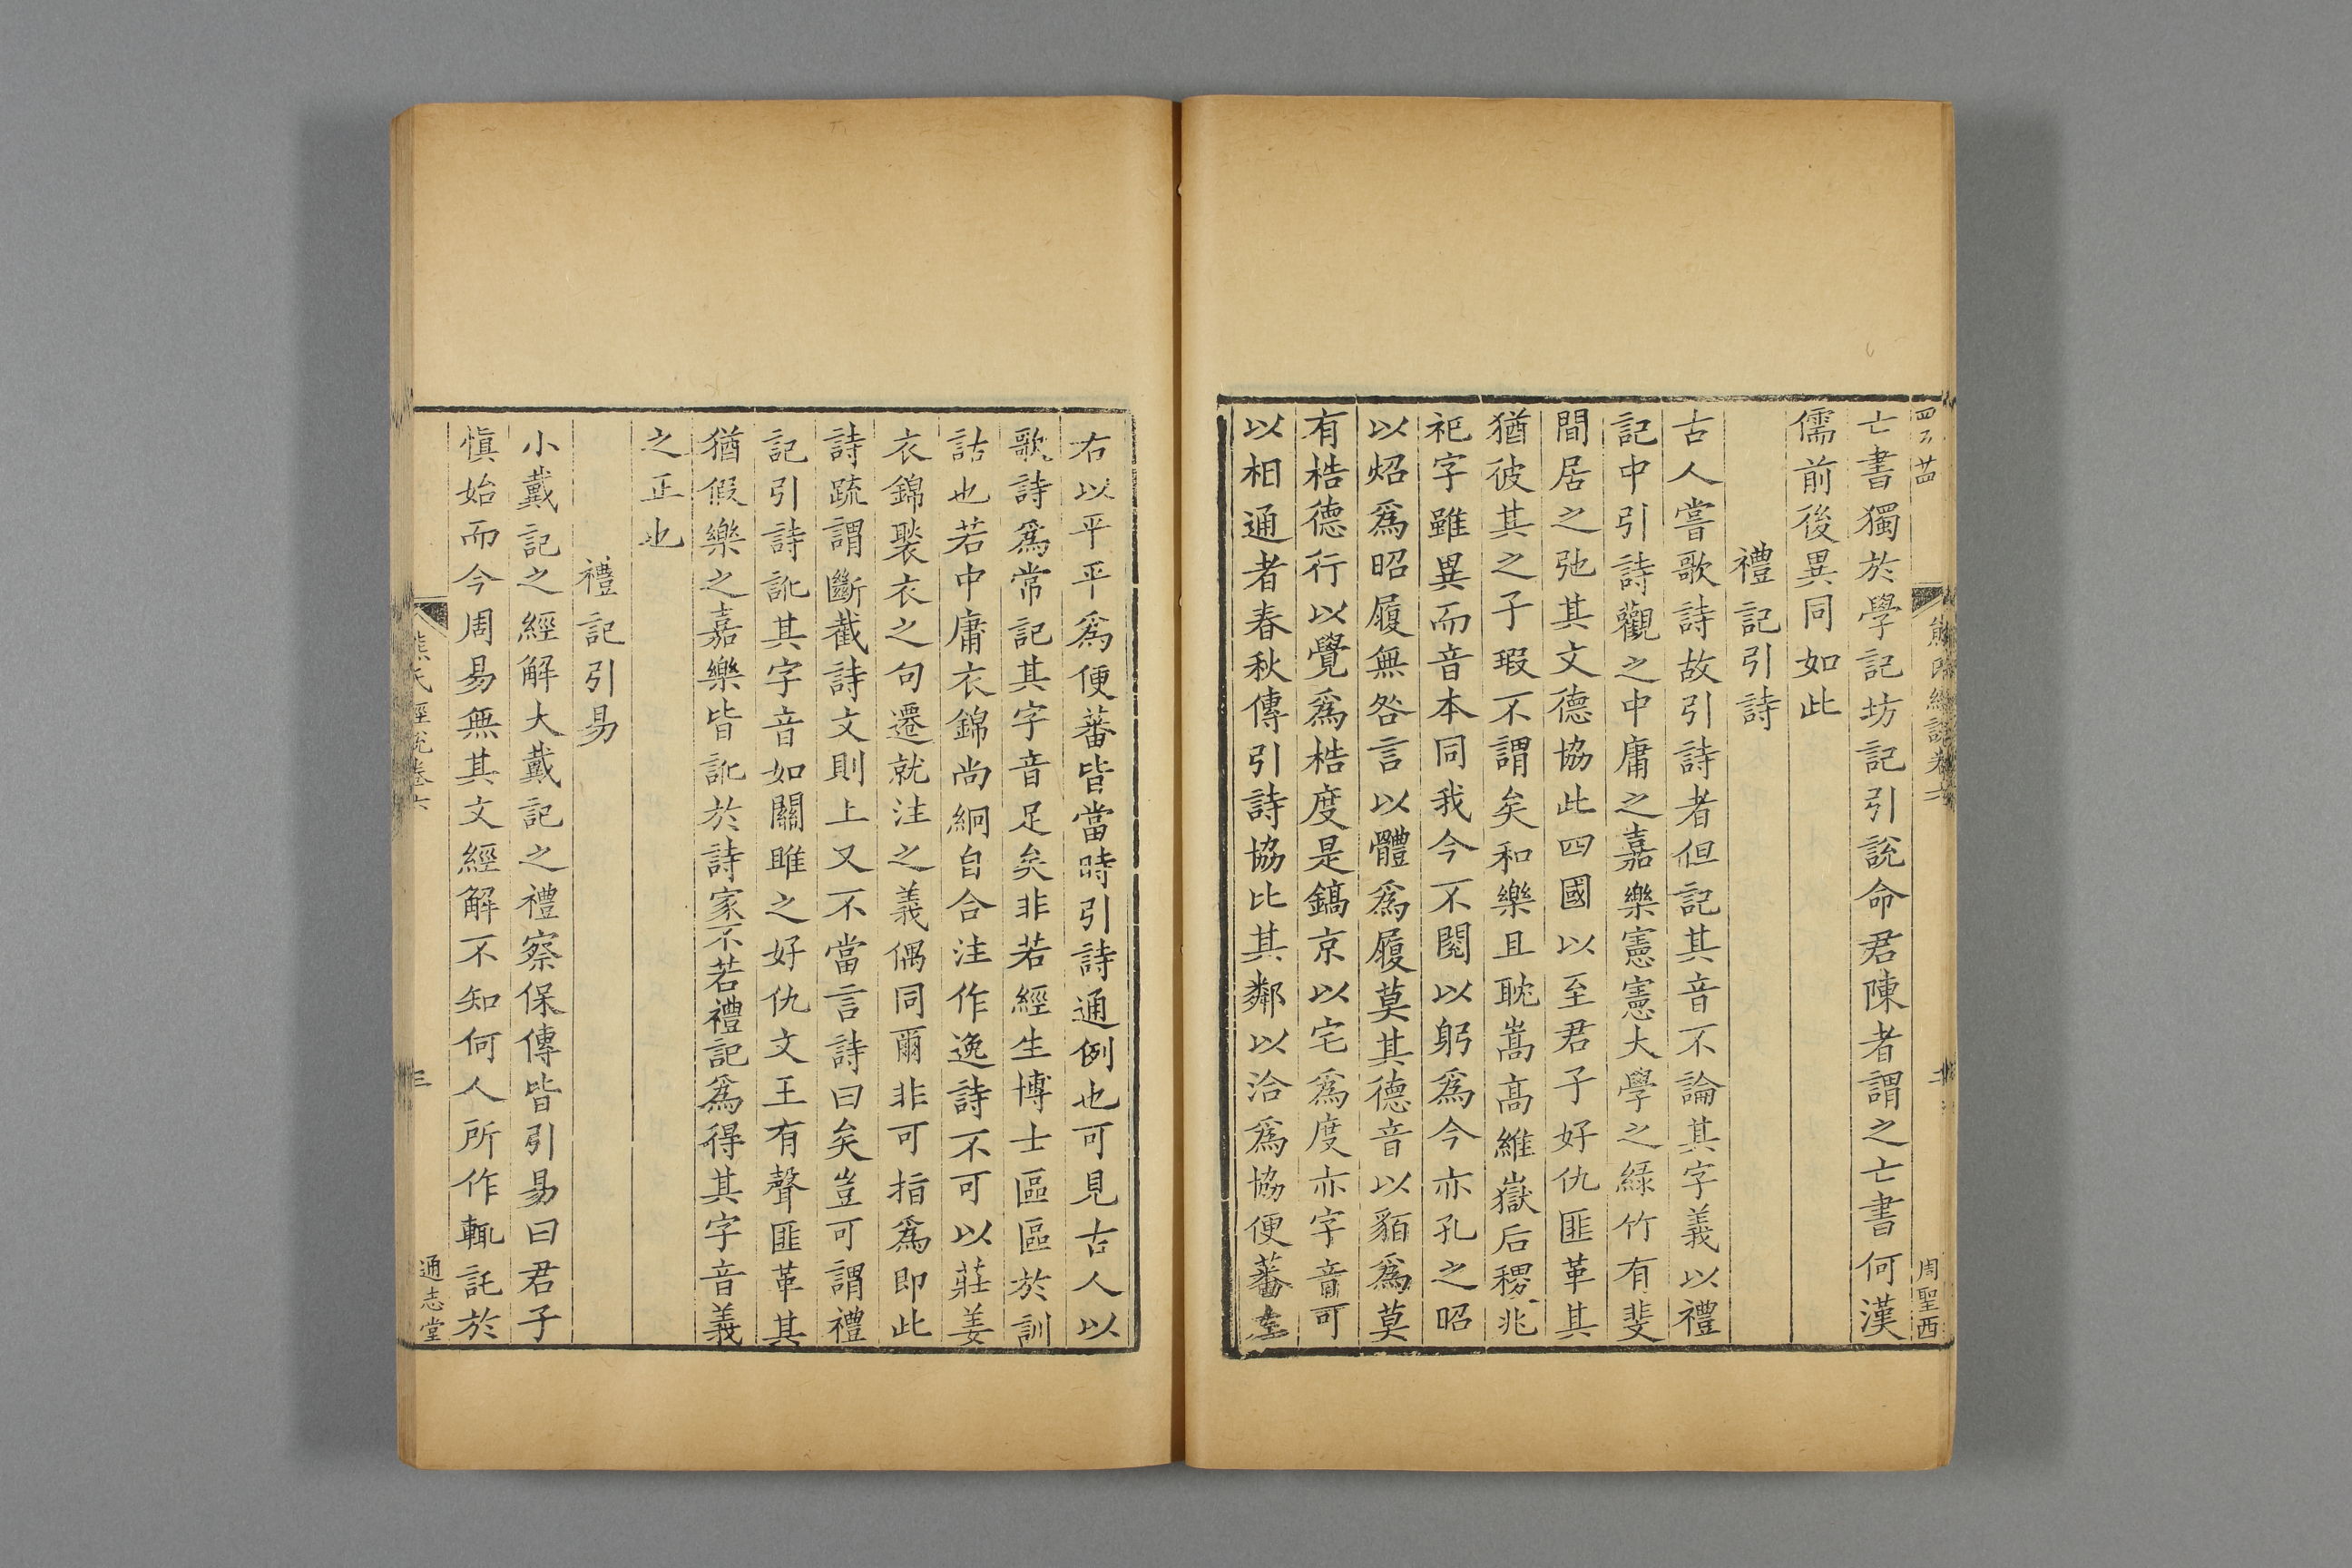 亡書獨於學記坊記引說命君陳者謂之亡書何漢
儒前後異同如此
禮記引詩
古人嘗歌詩故引詩者但記其音不論其字義以禮
記中引詩觀之中庸之嘉樂憲憲大學之綠竹有斐
間居之弛其文德協此四國以至君子好仇匪革其
猶彼其之子瑕不謂矣和樂且耽嵩高維嶽后稷兆
祀字雖異而音本同我今不閱以躬爲今亦孔之昭
以炤爲昭履無咎言以體爲履莫其德音以貊爲莫
有梏德行以覺爲梏度是鎬京以宅爲度亦字音可
以相通者春秋傳引詩協比其鄰以洽爲協便蕃左
右以平平爲便蕃皆當時引詩通例也可見古人以
歌詩爲常記其字音足矣非若經生博士區區於訓
詁也若中庸衣錦尚絅自合注作逸詩不可以莊姜
衣錦褧衣之句遷就注之義偶同爾非可指爲即此
詩疏謂斷截詩文則上又不當言詩曰矣豈可謂禮
記引詩訛其字音如關雎之好仇文王有聲匪革其
猶假樂之嘉樂皆訛於詩家不若禮記爲得其字音義
之正也
禮記引易
小戴記之經解大戴記之禮察保傳皆引易曰君子
慎始而今周易無其文經解不知何人所作輒託於
熊氏經說卷六
三
通志堂
周聖西